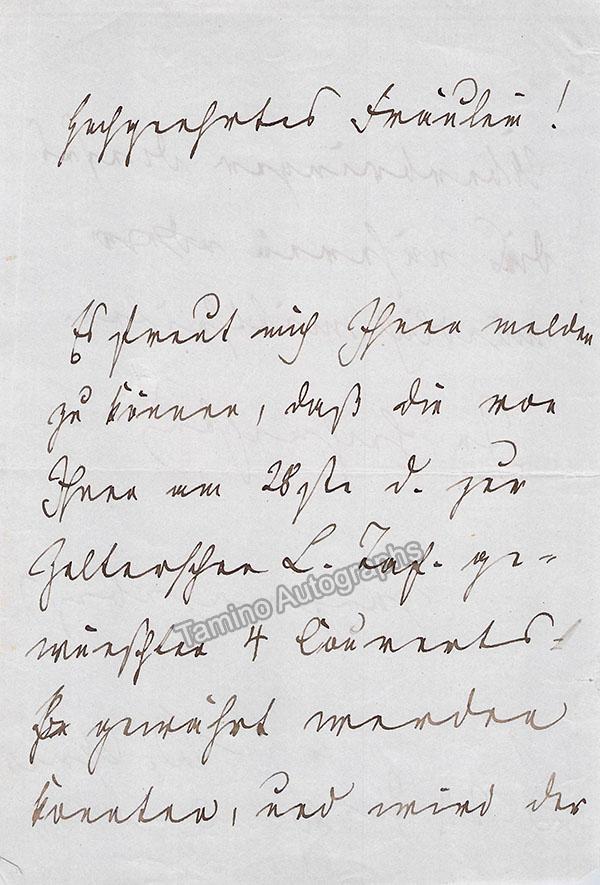 Hochgeehrtes Fräulein!
Es freut mich Ihnen melden
zu können, daß die von
Ihnen am 28ste d. zur
Zelterschen L. Taf. ge-
wünschten 4 Couverts
gewährt werden
konnten, und wird der
Tamino Autographs